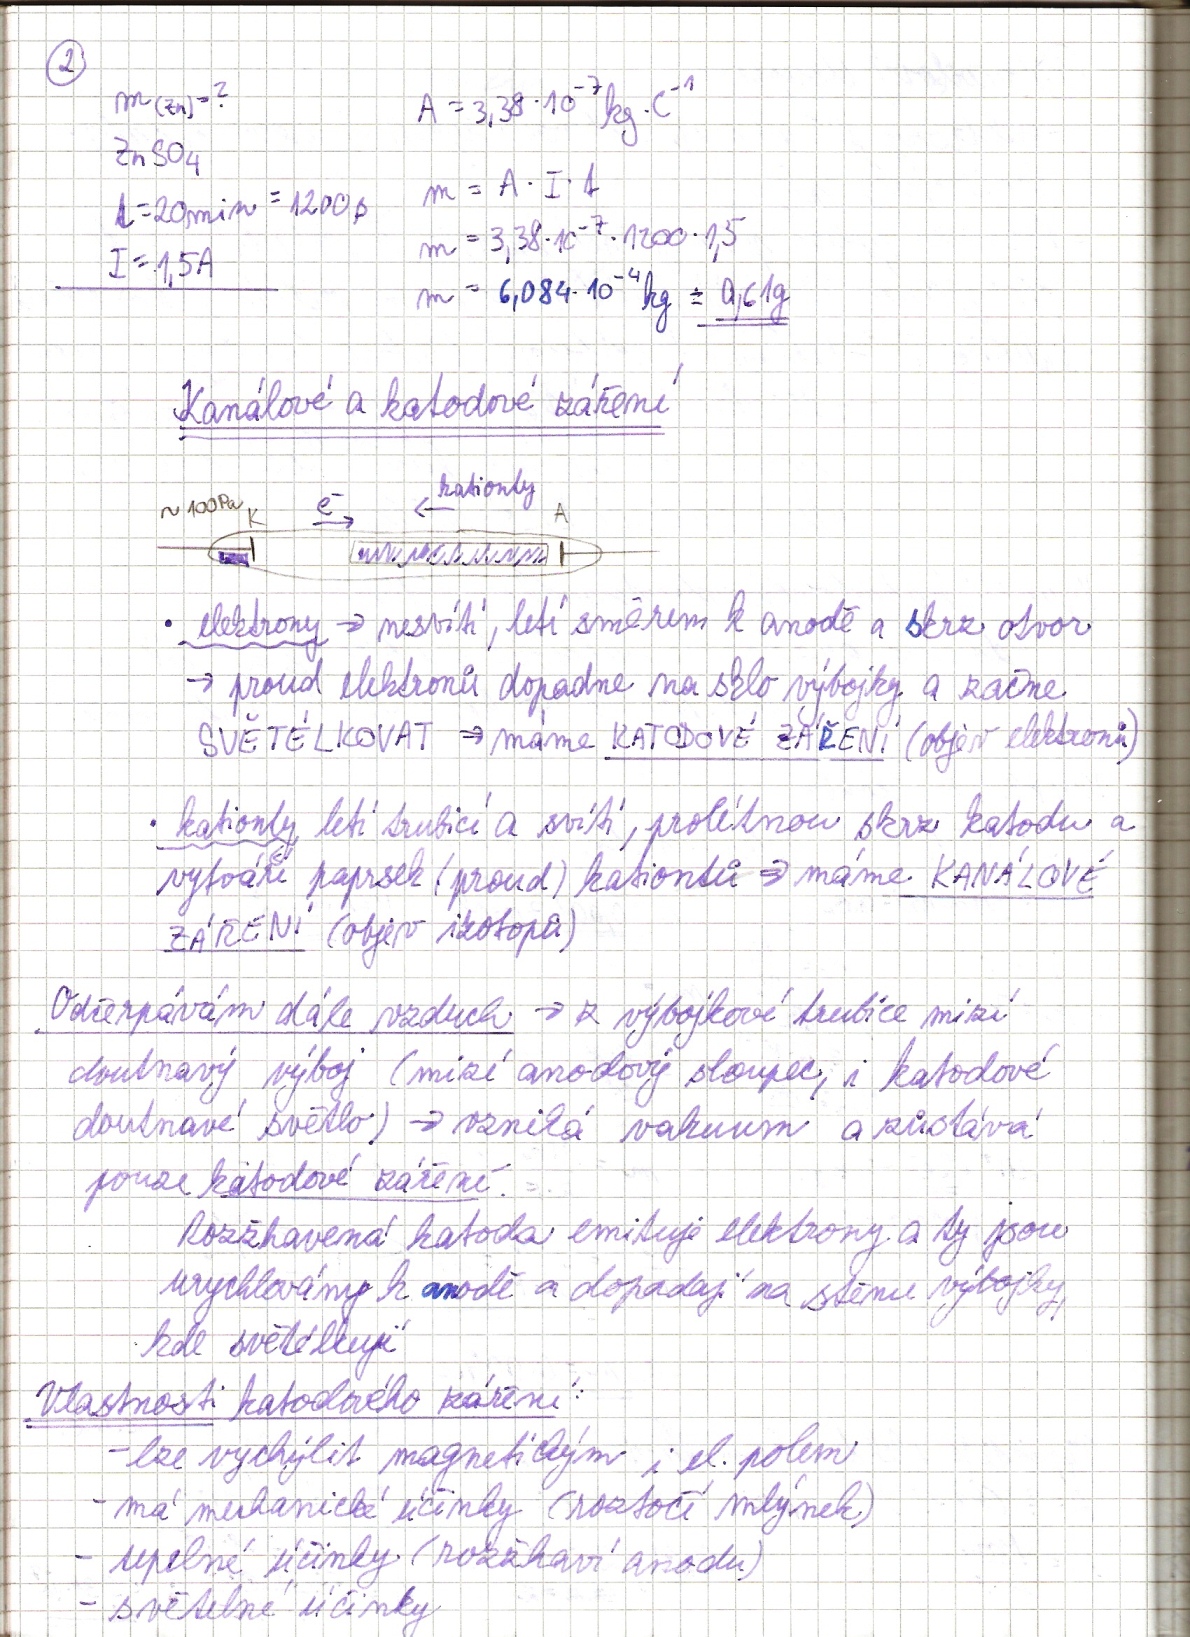 2
m(Zn)=?
ZnSO4
t=20min = 1200s
I=1,5A
A = 3,38·10⁻⁷ kg·C⁻¹
m = A·I·t
m = 3,38·10⁻⁷·1200·1,5
m = 6,084·10⁻⁴ kg ≐ 0,61g
Kanálové a katodové záření
~100Pa K e⁻ → ← kationty A
• elektrony → nesvítí, letí směrem k anodě a skrz otvor
→ proud elektronů dopadne na sklo výbojky a začne
SVĚTÉLKOVAT ⇒ máme KATODOVÉ ZÁŘENÍ (objev elektronů)
• kationty letí trubicí a svítí, prolétnou skrz katodu a
vytváří paprsek (proud) kationtů ⇒ máme KANÁLOVÉ
ZÁŘENÍ (objev izotopů)
Odčerpávám dále vzduch → z výbojkové trubice mizí
doutnavý výboj (mizí anodový sloupec, i katodové
doutnavé světlo) → vzniká vakuum a zůstává
pouze katodové záření.
Rozžhavená katoda emituje elektrony a ty jsou
urychlovány k anodě a dopadají na stěnu výbojky,
kde světélkují
Vlastnosti katodového záření:
- lze vychýlit magnetickým i el. polem
- má mechanické účinky (roztočí mlýnek)
- tepelné účinky (rozžhaví anodu)
- světelné účinky